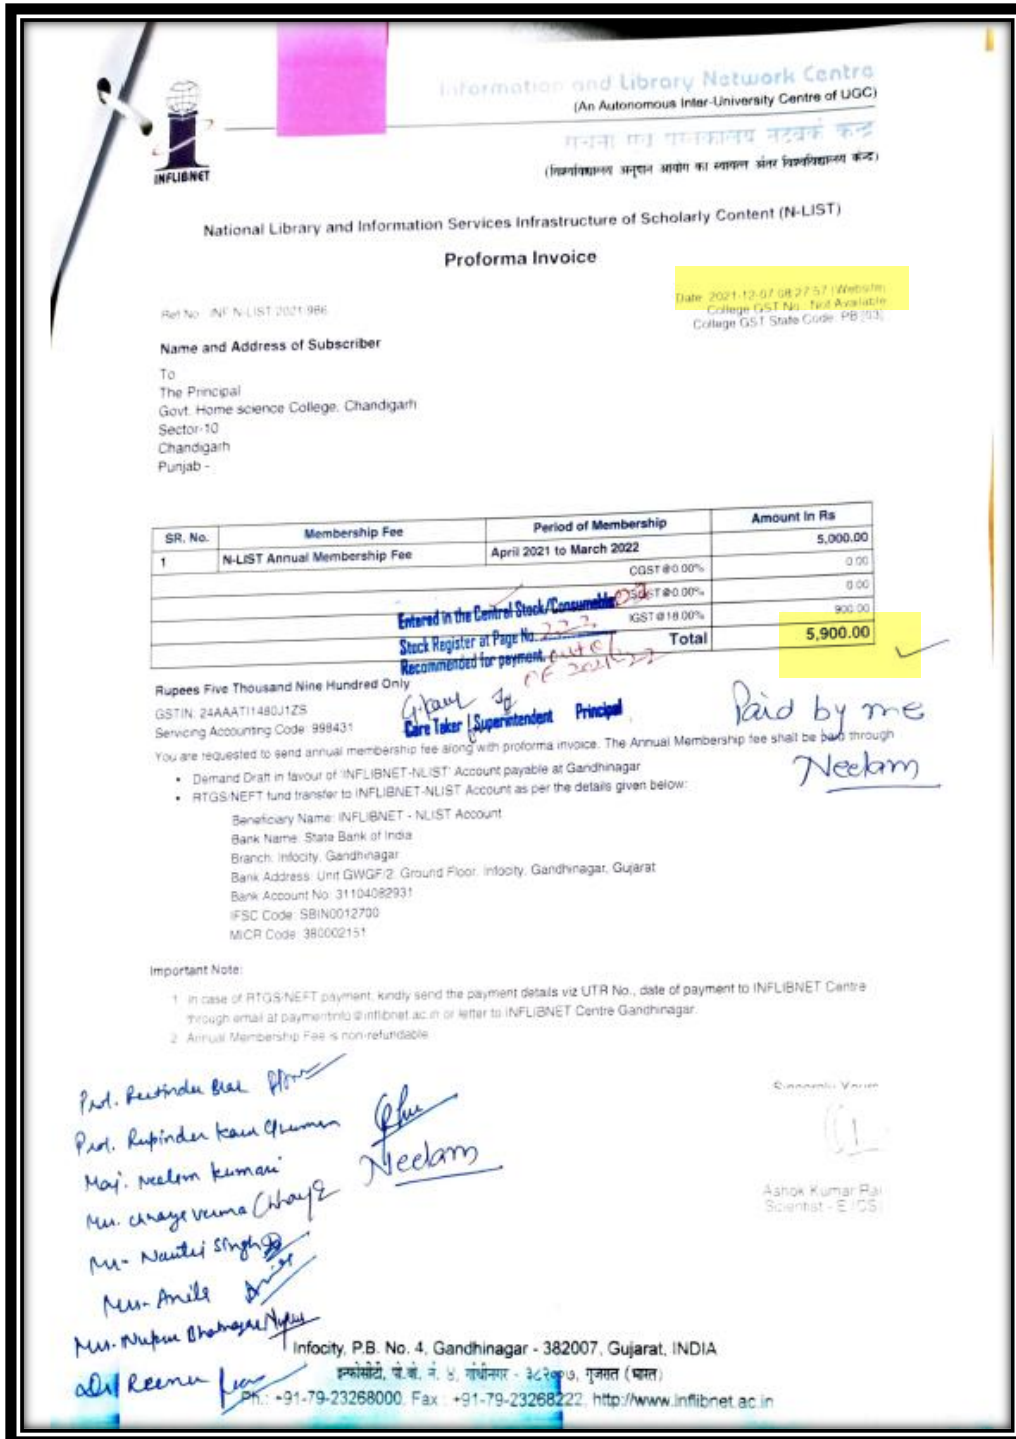 Information and Library Network Centre
(An Autonomous Inter-University Centre of UGC)
सूचना एवं पुस्तकालय नेटवर्क केन्द्र
(विश्वविद्यालय अनुदान आयोग का स्वायत्त अंतर विश्वविद्यालय केन्द्र)
INFLIBNET
National Library and Information Services Infrastructure of Scholarly Content (N-LIST)
Proforma Invoice
Ref No : INF N-LIST 2021 986
Date: 2021-12-07 08:27:57 (Website)
College GST No.: Not Available
College GST State Code: PB [03]
Name and Address of Subscriber
To
The Principal
Govt. Home science College, Chandigarh
Sector-10
Chandigarh
Punjab -
SR. No. Membership Fee Period of Membership Amount In Rs
1 N-LIST Annual Membership Fee April 2021 to March 2022 5,000.00
CGST@0.00% 0.00
SGST@0.00% 0.00
IGST@18.00% 900.00
Total 5,900.00
Entered in the Central Stock/Consumable
Stock Register at Page No. 222
Recommended for payment.
of 2021-22
Care Taker / Superintendent Principal
Rupees Five Thousand Nine Hundred Only
GSTIN: 24AAATI1480J1ZS
Servicing Accounting Code: 998431
Paid by me
Neelam
You are requested to send annual membership fee along with proforma invoice. The Annual Membership fee shall be paid through
• Demand Draft in favour of 'INFLIBNET-NLIST' Account payable at Gandhinagar
• RTGS/NEFT fund transfer to INFLIBNET-NLIST Account as per the details given below:
Beneficiary Name: INFLIBNET - NLIST Account
Bank Name: State Bank of India
Branch: Infocity, Gandhinagar
Bank Address: Unit GWGF/2, Ground Floor, Infocity, Gandhinagar, Gujarat
Bank Account No: 31104082931
IFSC Code: SBIN0012700
MICR Code: 380002151
Important Note:
1 In case of RTGS/NEFT payment, kindly send the payment details viz UTR No., date of payment to INFLIBNET Centre
through email at paymentinfo@inflibnet.ac.in or letter to INFLIBNET Centre Gandhinagar.
2 Annual Membership Fee is non-refundable
Sincerely Yours
Ashok Kumar Rai
Scientist - E (CS)
Prof. Brar
Prof. Rupinder Kaur Ghuman
Maj. Neelam Kumari Neelam
Mrs. Chhaya Verma Chhaya
Singh
Mrs. Anila
Mrs. Nupur Bhatnagar
Dr Reena
Infocity, P.B. No. 4, Gandhinagar - 382007, Gujarat, INDIA
इन्फोसीटी, पो.बो. नं. ४, गांधीनगर - ३८२००७, गुजरात (भारत)
Ph.: +91-79-23268000, Fax : +91-79-23268222, http://www.inflibnet.ac.in